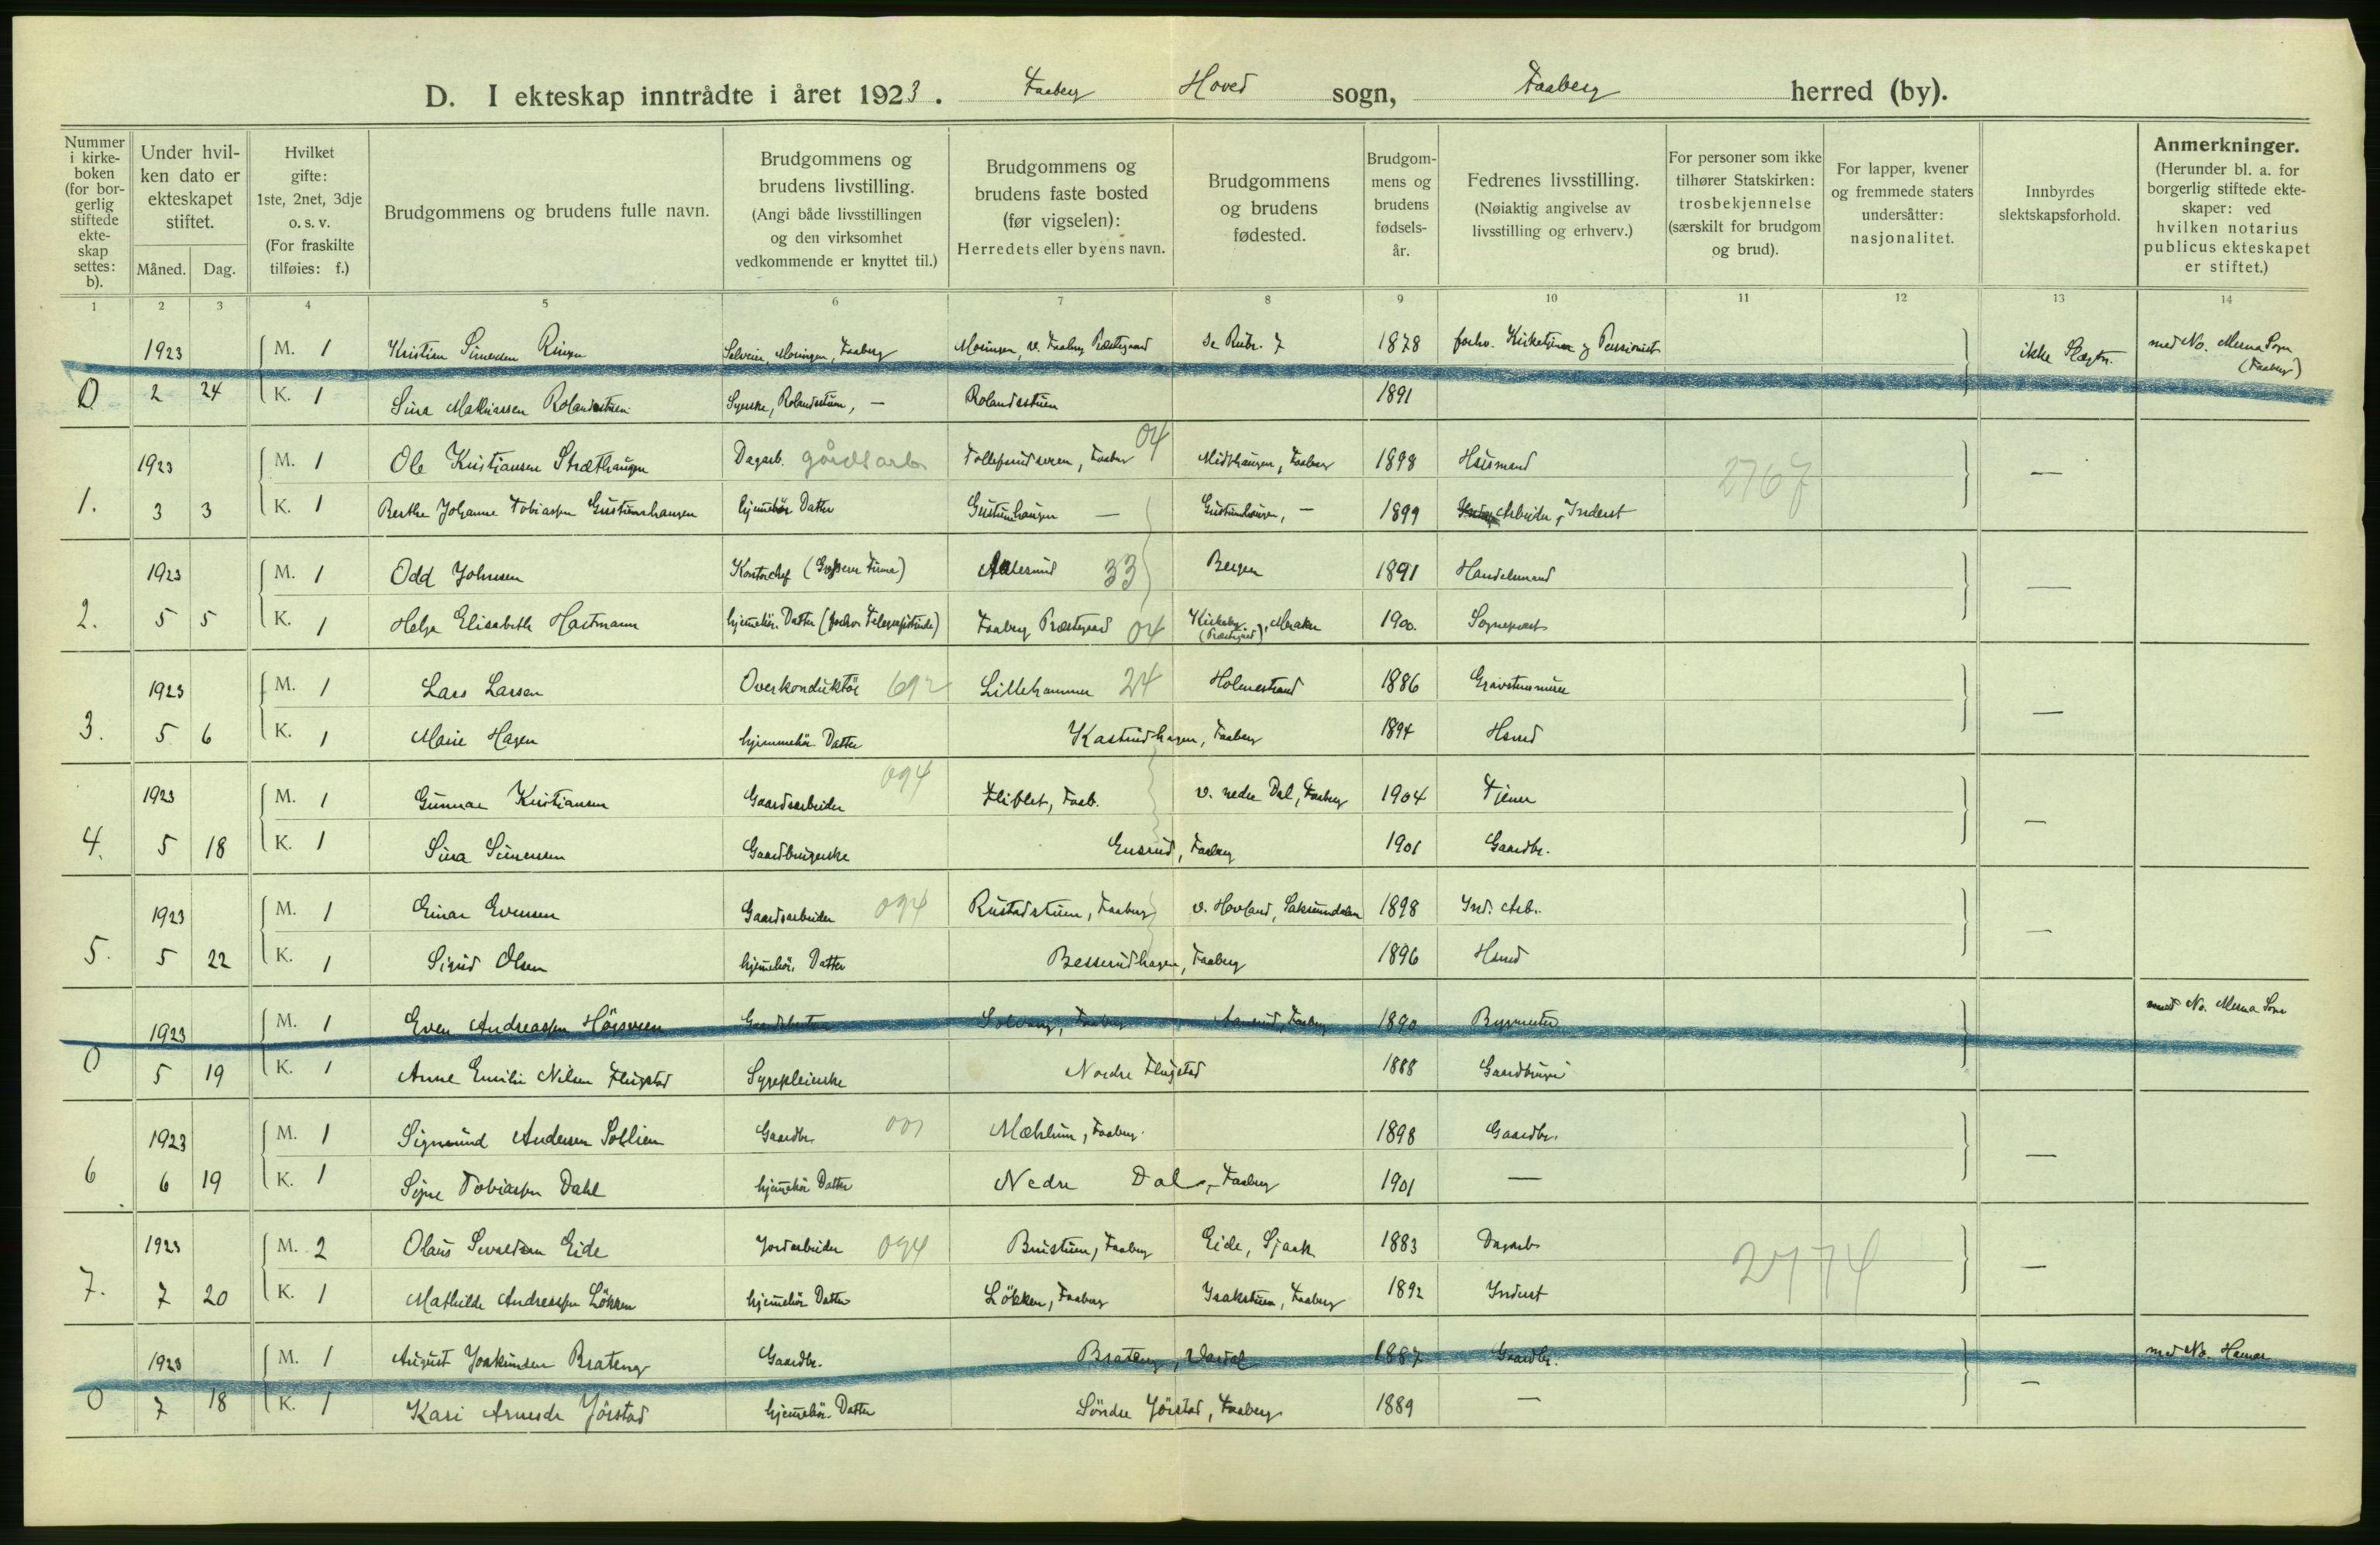 D. I ekteskap inntrådte i året 1923. Faaberg Hoved sogn, Faaberg herred (by).
Nummer i kirkeboken (for borgerlig stiftede ekteskap settes: b).
Under hvilken dato er ekteskapet stiftet.
Måned. Dag.
Hvilket gifte: 1ste, 2net, 3dje o. s. v. (For fraskilte tilføies: f.)
Brudgommens og brudens fulle navn.
Brudgommens og brudens livstilling. (Angi både livsstillingen og den virksomhet vedkommende er knyttet til.)
Brudgommens og brudens faste bosted (før vigselen): Herredets eller byens navn.
Brudgommens og brudens fødested.
Brudgommens og brudens fødselsår.
Fedrenes livsstilling. (Nøiaktig angivelse av livsstilling og erhverv.)
For personer som ikke tilhører Statskirken: trosbekjennelse (særskilt for brudgom og brud).
For lapper, kvener og fremmede staters undersåtter: nasjonalitet.
Innbyrdes slektskapsforhold.
Anmerkninger. (Herunder bl. a. for borgerlig stiftede ekteskaper: ved hvilken notarius publicus ekteskapet er stiftet.)
1 2 3 4 5 6 7 8 9 10 11 12 13 14
1923 M. 1 Kristian Simensen Ringen Faaberg Se Rubr. 7 1878 ikke Slegtn. med No. Mesna Sogn (Faaberg)
0 2 24 K. 1 Sina Mathiassen Rolandsstuen Syerske, Rolandsstuen, — Rolandsstuen 1891
1923 M. 1 Ole Kristiansen Stræthaugen Dagarb. gårdsarb Faaberg 04 Midthaugen, Faaberg 1898 Husmand 2767 —
1. 3 3 K. 1 Berthe Johanne Tobiassen Gustumhaugen hjemmehör. Datter Gustumhaugen — Gustumhaugen, — 1899 Arbeider, Inderst
1923 M. 1 Odd Johnsen Kontorchef Aalesund 33 Bergen 1891 Handelsmand —
2. 5 5 K. 1 Helga Elisabeth Hartmann hjemmehör. Datter (forhv. Telegrafistinde) Faaberg Præstegaard 04 Kirkeby (Præstegaard), Meraker 1900. Sogneprest
1923 M. 1 Lars Larsen Overkonduktör 692 Lillehammer 24 Holmestrand 1886 —
3. 5 6 K. 1 Marie Hagen hjemmehör. Datter Kastrudhagen, Faaberg 1894 Hsmd
1923 M. 1 Gunnar Kristiansen Gaardsarbeider 094 Flihlet, Faab. v. nedre Dal, Faaberg 1904 Tjener —
4. 5 18 K. 1 Sina Simensen Gaardbrugerske Ensrud, Faaberg 1901 Gaardbr.
1923 M. 1 Einar Evensen Gaardsarbeider 094 Rustadstuen, Faaberg v. Hovland, Saksumdalen 1898 Ind. Arb. —
5. 5 22 K. 1 Sigrid Olsen hjemmehör. Datter Besserudhagen, Faaberg 1896 Hsmd
1923 M. 1 Even Andreassen Hörsveen Solvang, Faaberg Faaberg 1890 Bygmester med No. Mesna Sogn
0 5 19 K. 1 Anne Emilie Nilsen Flugstad Sygepleierske Nordre Flugstad 1888 Gaardbruger
1923 M. 1 Sigmund Andersen Sollien Gaardbr. 001 Mæhlum, Faaberg 1898 Gaardbr. —
6 6 19 K. 1 Signe Tobiassen Dahl hjemmehör. Datter Nedre Dal, Faaberg 1901 —
1923 M. 2 Olaus Sivaldsen Eide Jordarbeider 094 Bristuen, Faaberg Eide, Sjaak 1883 Dagarb. 2774 —
7. 7 20 K. 1 Mathilde Andreassen Lökken hjemmehör. Datter Lökken, Faaberg Isakstuen, Faaberg 1892 Inderst
1923 M. 1 August Joakimsen Brateng Gaardbr. Brateng, Vardal 1887 Gaardbr. — med No. Hamar
0 7 18 K. 1 Kari Arnesdr Jörstad hjemmehör. Datter Söndre Jörstad, Faaberg 1889 —